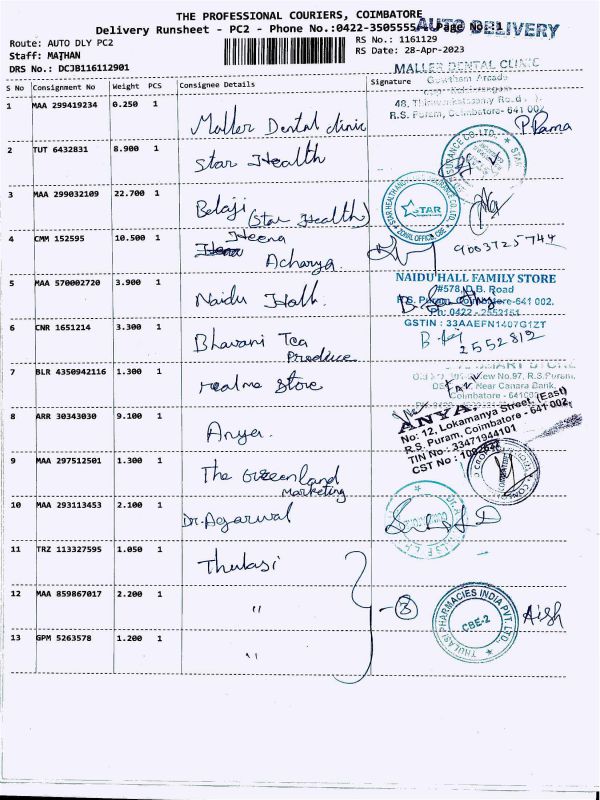 THE PROFESSIONAL COURIERS, COIMBATORE
Delivery Runsheet - PC2 - Phone No.:0422-3505555 Page No.:1
AUTO DELIVERY
Route: AUTO DLY PC2
RS No.: 1161129
Staff: MATHAN
RS Date: 28-Apr-2023
DRS No.: DCJB116112901
S No Consignment No Weight PCS Consignee Details Signature
MALLER DENTAL CLINIC
Gowtham Arcade
48, Thiruvenkatasamy Road
R.S. Puram, Coimbatore- 641 002
1 MAA 299419234 0.250 1 Maller Dental clinic P. Rama
2 TUT 6432831 8.900 1 Star Health
3 MAA 299032109 22.700 1 Balaji (Star Health)
STAR
ZONAL OFFICE, CBE
4 CMM 152595 10.500 1 Heena
Acharya. 9003725744
5 MAA 570002720 3.900 1 Naidu Hall.
NAIDU HALL FAMILY STORE
#578, D.B. Road
R.S. Puram, Coimbatore-641 002.
Ph: 0422 - 2552161
GSTIN : 33AAEFN1407G1ZT
6 CNR 1651214 3.300 1 Bhavani Tea
Produce 2552812
7 BLR 4350942116 1.300 1 realme Store
New No.97, R.S.Puram,
Near Canara Bank,
Coimbatore -
8 ARR 30343030 9.100 1 Anya.
ANYA
No: 12, Lokamanya Street, (East)
R.S. Puram, Coimbatore - 641 002.
TIN No : 33471944101
CST No :
9 MAA 297512501 1.300 1 The Greenland
Marketing
10 MAA 293113453 2.100 1 Dr.Agarwal
11 TRZ 113327595 1.050 1 Thulasi
12 MAA 859867017 2.200 1 " - 3
THULASI PHARMACIES INDIA PVT. LTD.,
CBE-2
Aish
13 GPM 5263578 1.200 1 "